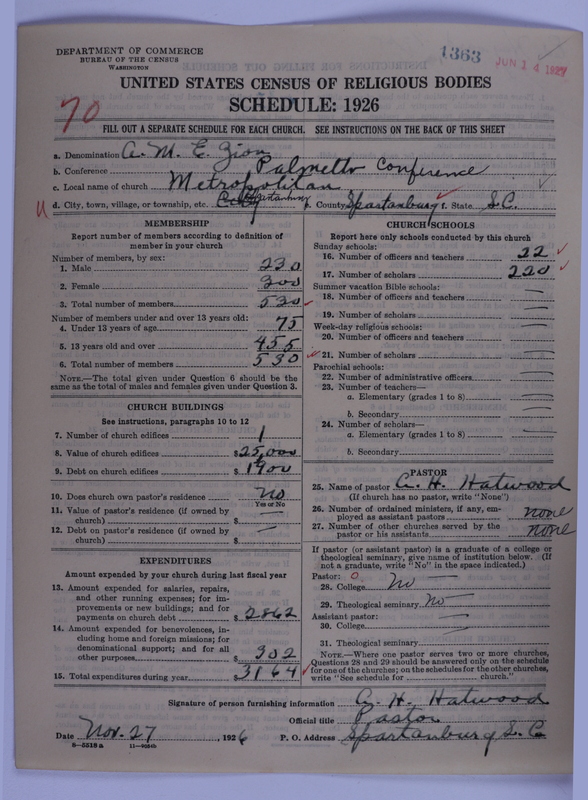 DEPARTMENT OF COMMERCE
BUREAU OF THE CENSUS
WASHINGTON
1363
JUN 14 1927
UNITED STATES CENSUS OF RELIGIOUS BODIES
SCHEDULE: 1926
70
FILL OUT A SEPARATE SCHEDULE FOR EACH CHURCH. SEE INSTRUCTIONS ON THE BACK OF THIS SHEET
a. Denomination A. M. E. Zion
b. Conference Palmetto Conference
c. Local name of church Metropolitan
d. City, town, village, or township, etc. City Spartanburg e. County Spartanburg f. State S.C.
MEMBERSHIP
Report number of members according to definition of
member in your church
Number of members, by sex:
1. Male 230
2. Female 300
3. Total number of members 530
Number of members under and over 13 years old:
4. Under 13 years of age 75
5. 13 years old and over 455
6. Total number of members 530
NOTE.—The total given under Question 6 should be the
same as the total of males and females given under Question 3.
CHURCH BUILDINGS
See instructions, paragraphs 10 to 12
7. Number of church edifices 1
8. Value of church edifices $25,000
9. Debt on church edifices $1900
10. Does church own pastor's residence No
Yes or No
11. Value of pastor's residence (if owned by
church) $ —
12. Debt on pastor's residence (if owned by
church) $ —
EXPENDITURES
Amount expended by your church during last fiscal year
13. Amount expended for salaries, repairs,
and other running expenses; for im-
provements or new buildings; and for
payments on church debt $2862
14. Amount expended for benevolences, in-
cluding home and foreign missions; for
denominational support; and for all
other purposes $302
15. Total expenditures during year $3164
CHURCH SCHOOLS
Report here only schools conducted by this church
Sunday schools:
16. Number of officers and teachers 22
17. Number of scholars 220
Summer vacation Bible schools:
18. Number of officers and teachers —
19. Number of scholars —
Week-day religious schools:
20. Number of officers and teachers —
21. Number of scholars —
Parochial schools:
22. Number of administrative officers —
23. Number of teachers—
a. Elementary (grades 1 to 8) —
b. Secondary —
24. Number of scholars—
a. Elementary (grades 1 to 8) —
b. Secondary —
PASTOR
25. Name of pastor G. H. Hatwood
(If church has no pastor, write "None")
26. Number of ordained ministers, if any, em-
ployed as assistant pastors none
27. Number of other churches served by the
pastor or his assistants none
If pastor (or assistant pastor) is a graduate of a college or
theological seminary, give name of institution below. (If
not a graduate, write "No" in the space indicated.)
Pastor: 0
28. College No
29. Theological seminary No
Assistant pastor:
30. College —
31. Theological seminary —
NOTE.—Where one pastor serves two or more churches,
Questions 28 and 29 should be answered only on the schedule
for one of the churches; on the schedules for the other churches,
write "See schedule for ______ church."
Signature of person furnishing information G. H. Hatwood
Official title Pastor
Date Nov. 27, 1926 P. O. Address Spartanburg S. C.
8—5518 a 11—9054b